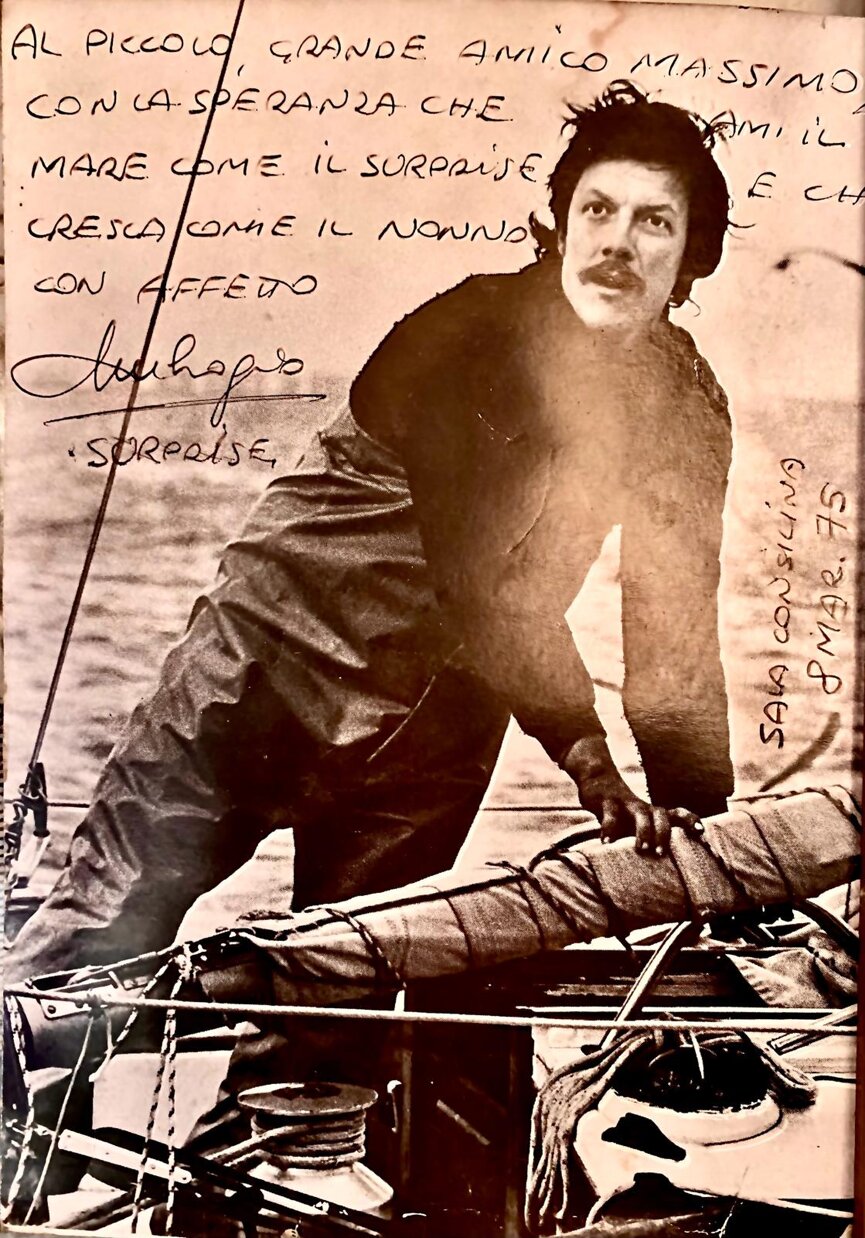 AL PICCOLO, GRANDE AMICO MASSIMO,
CON LA SPERANZA CHE AMI IL
MARE COME IL SURPRISE E CH
CRESCA COME IL NONNO
CON AFFETTO
Ambrogio
SURPRISE,
SALA CONSILINA
8 MAR. 75